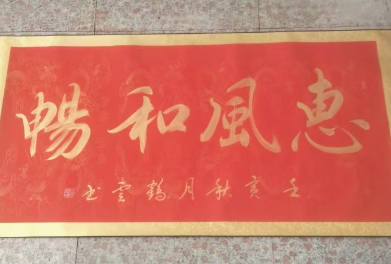 惠風和暢
壬寅秋月鶴雲书